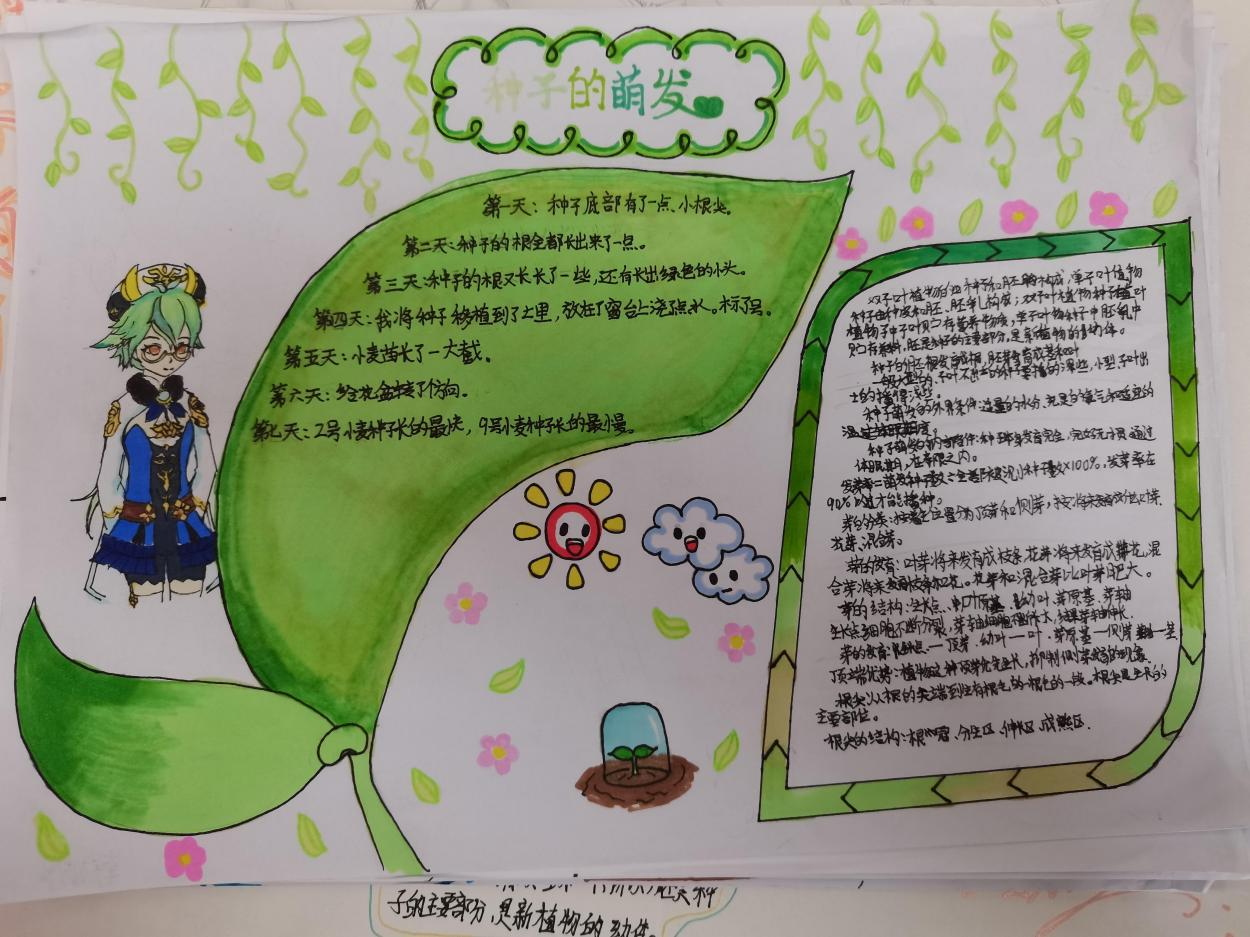 种子的萌发
第一天：种子底部有了一点小根尖。
第二天：种子的根全都长出来了一点。
第三天：种子的根又长长了一些，还有长出绿色的小头。
第四天：我将种子移植到了土里，放在了窗台上浇点水。标了号。
第五天：小麦苗长了一大截。
第六天：给花盆转了个方向。
第七天：2号小麦种子长的最快，9号小麦种子长的最慢。
双子叶植物的种子由种皮和胚构成，单子叶植物
种子由种皮和胚、胚乳构成；双子叶植物种子
植物子叶贮存营养物质，单子叶植物种子中胚乳中
贮存养料，胚是种子的主要部分，是新植物的幼体。
种子的胚根发育成根，胚芽发育成茎和叶
一般大型的、子叶不出土的种子要播的深些，小型、子叶出
土的播得浅些。
种子萌发的外界条件：适量的水分、充足的氧气和适宜的
温度
种子萌发的内部条件：种子发育完全，完好无损，通过
休眠期，在寿限之内。
发芽率=萌发种子数÷全部被测种子数×100%，发芽率在
90%以上才能播种。
芽的分类：按着生位置分为顶芽和侧芽，按将来发育分为叶芽、
花芽、混合芽。
芽的发育：叶芽将来发育成枝条，花芽将来发育成花，混
合芽将来发育成枝条和花。花芽和混合芽比叶芽肥大。
芽的结构：生长点、叶原基、幼叶、芽原基、芽轴
生长点细胞不断分裂，芽轴细胞伸长
芽的发育：生长点—顶芽、幼叶—叶、芽原基—侧芽、芽轴—茎
顶端优势：植物这种顶芽优先生长，抑制侧芽发育的现象
根尖：从根的尖端到生有根毛的一段。根尖是生长的
主要部位。
根尖的结构：根冠、分生区、伸长区、成熟区。
子的主要部分，是新植物的幼体。